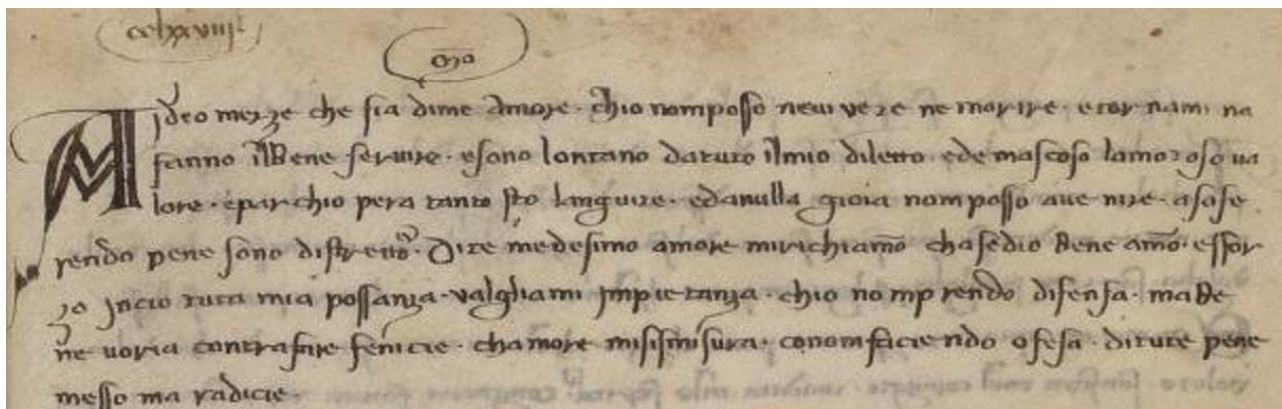 cclxxviiij
Mo
Mjdeo merze che sia dime Amore · chio nomposso neui ve re ne morire · etor nami na
fanno ilBene servire · esono lontano datuto ilmio diletto · ede mascoso lamoroso va
lore · eparchio pera tanto sto languire · edanulla gioia nomposso ave nire · asofe
rendo pene sono distretto · Dite medesimo amore mirichiamo chasedio Bene amo · essfor
zo jncio tuta mia possanza · valgliami jmpietanza · chio nomp rendo difensa · maBe
ne voria contrafare fenicie · chamore misismisura · conomfacie ndo ofesa · ditute pene
messo ma radicie ·